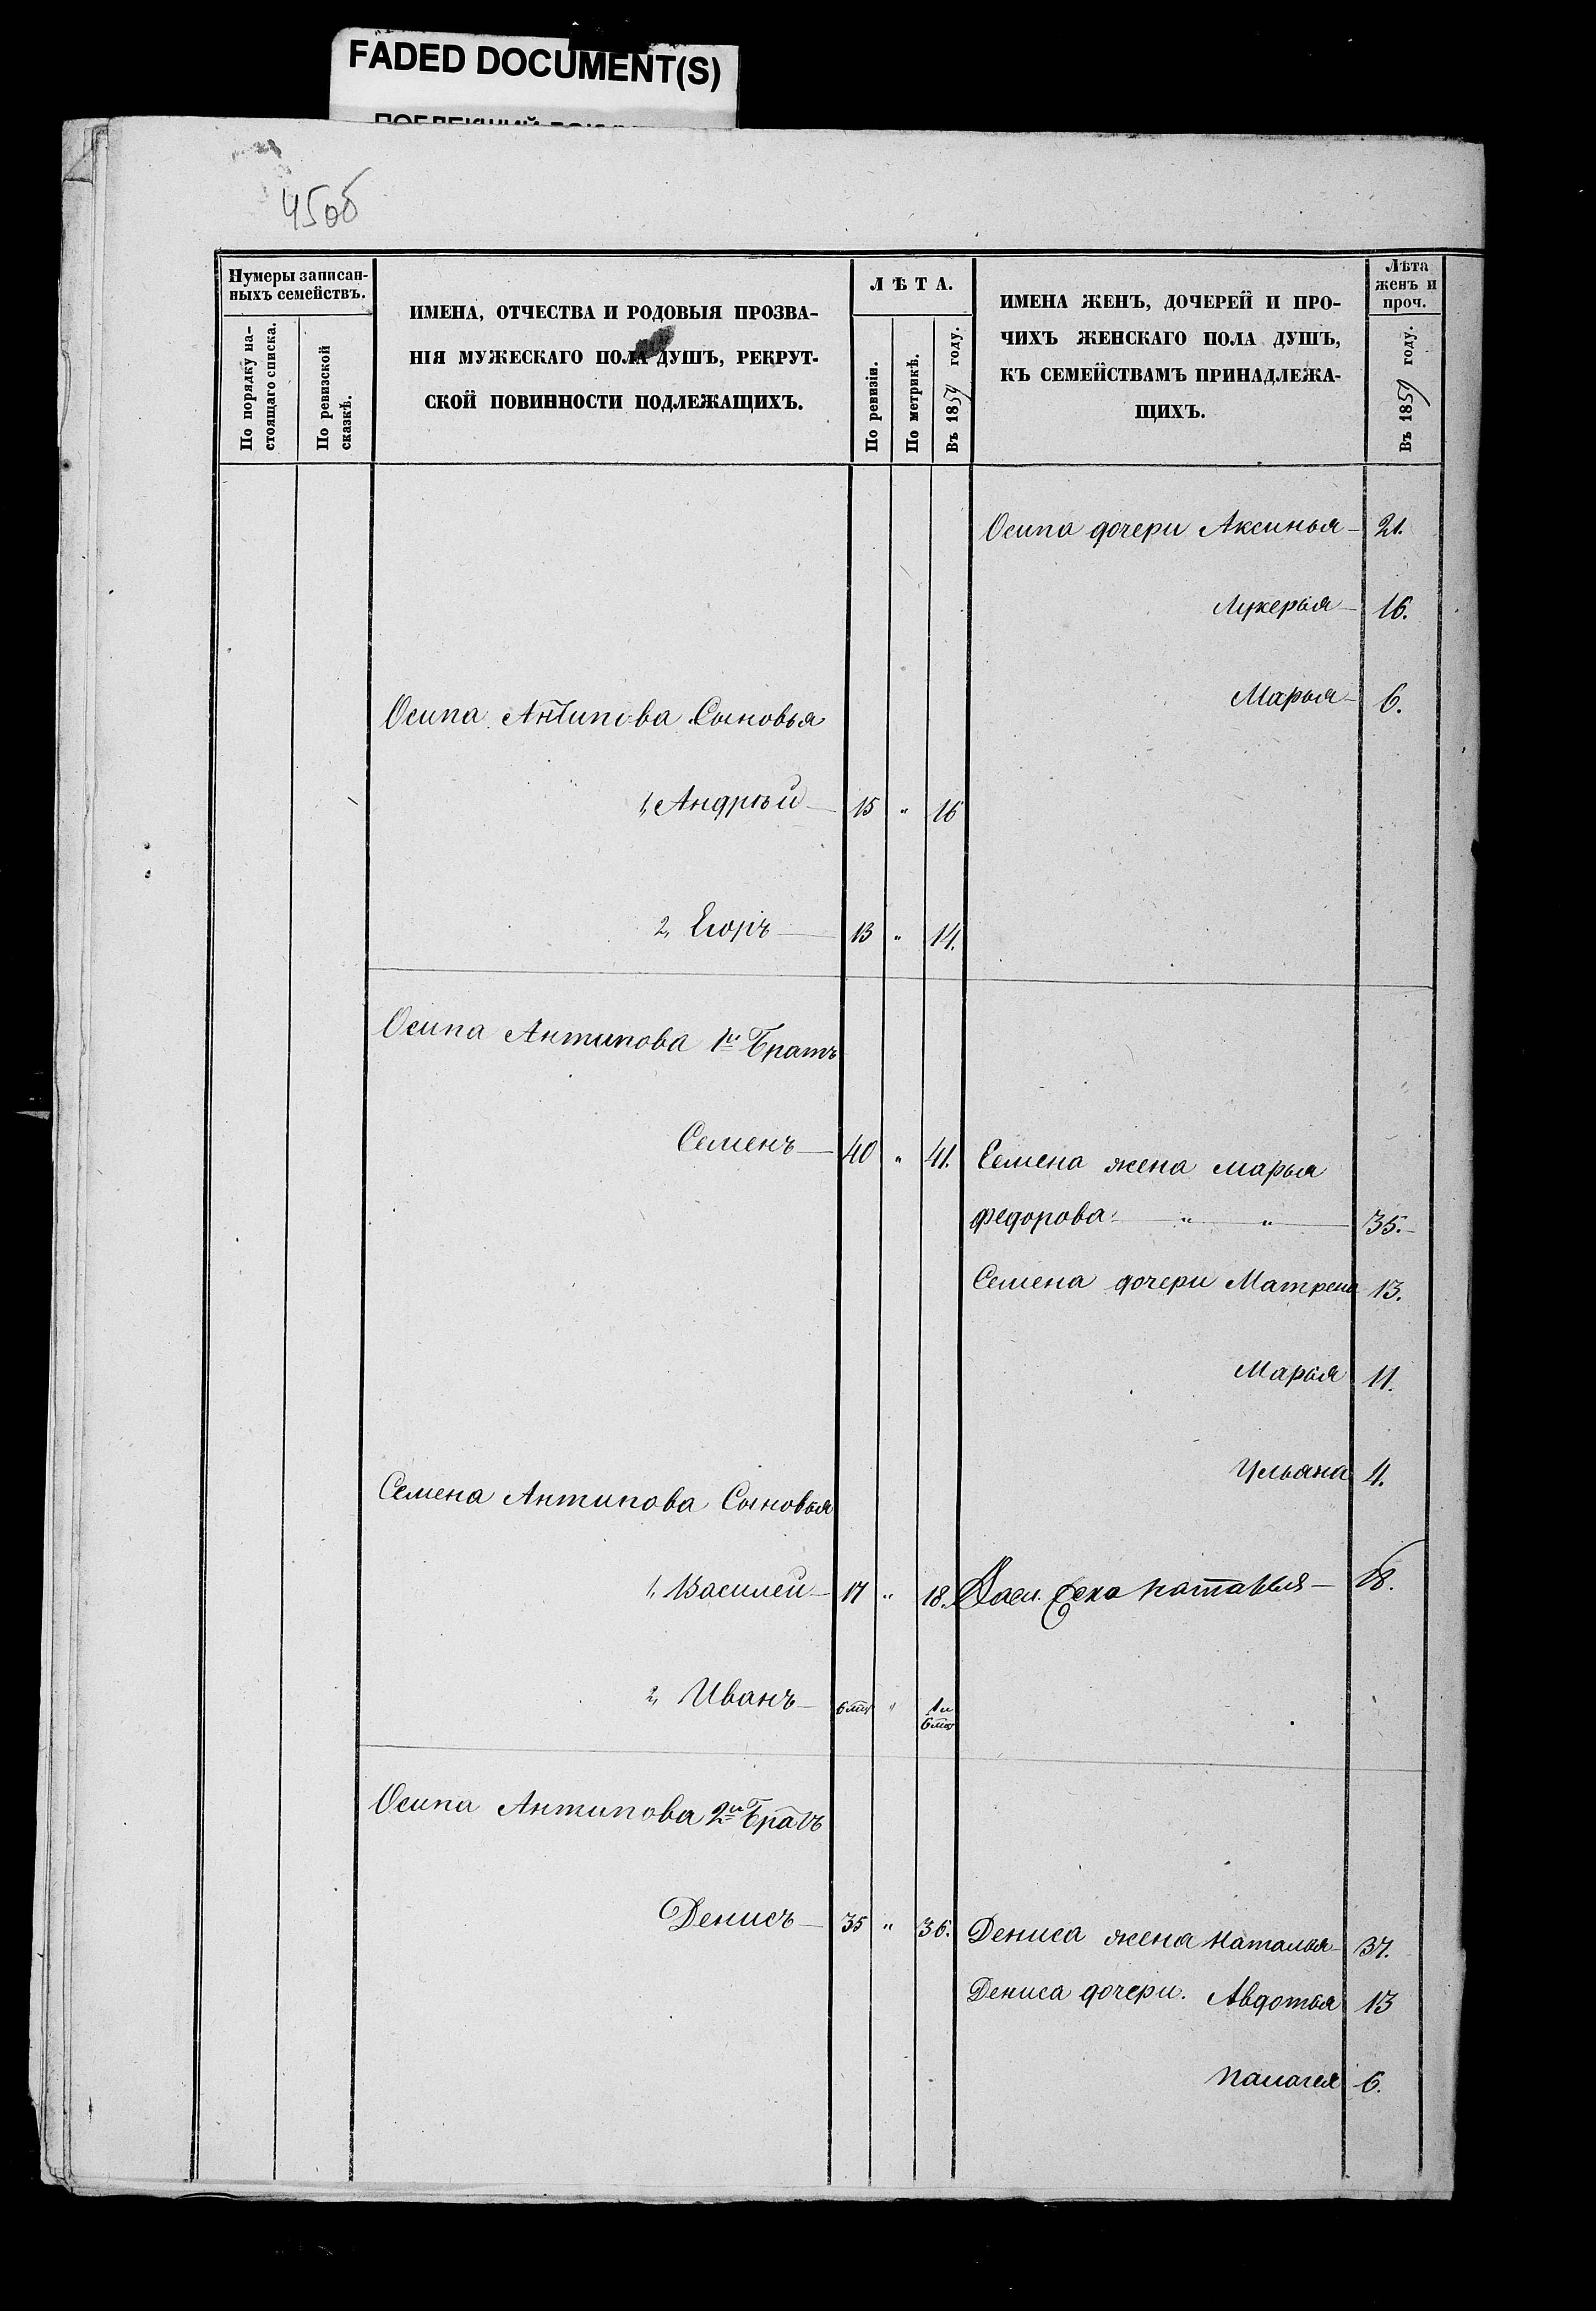 FADED DOCUMENT(S)
45об
Нумеры записан-
ныхъ семействъ.
По порядку на-
стоящаго списка.
По ревизской
сказкѣ.
ИМЕНА, ОТЧЕСТВА И РОДОВЫЯ ПРОЗВА-
НІЯ МУЖЕСКАГО ПОЛА ДУШЪ, РЕКРУТ-
СКОЙ ПОВИННОСТИ ПОДЛЕЖАЩИХЪ.
ЛѢТА.
По ревизіи.
По метрикѣ.
Въ 1859 году.
ИМЕНА ЖЕНЪ, ДОЧЕРЕЙ И ПРО-
ЧИХЪ ЖЕНСКАГО ПОЛА ДУШЪ,
КЪ СЕМЕЙСТВАМЪ ПРИНАДЛЕЖА-
ЩИХЪ.
Лѣта
женъ и
проч.
Въ 1859 году.
Осипа дочери Аксинья — 21.
Лукерья — 16.
Марья — 6.
Осипа Антипова Сыновья
1, Андрѣй — 15 " 16
2, Егоръ — 13 " 14.
Осипа Антипова 1й Братъ
Семенъ — 40 " 41. Семена жена марья
федорова — " — " — 35. —
Семена дочери Матрена 13.
Марья 11.
Ульяна 4.
Семена Антипова Сыновья
1, Василей — 17 " 18. Васил. жена наталья — 18.
2, Иванъ — 6 " 1 и
6
Осипа Антипова 2й Братъ
Денисъ — 35 " 36. Дениса жена наталья — 37.
Дениса дочери. Авдотья 13
палагея 6.